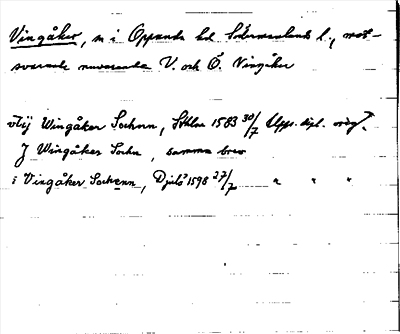 Vingåker, sn i Oppunda hd Södermanlands l., mot-
svarande nuvarande V. och Ö. Vingåker
Wingåker Sochnn, 1583 30/7 Upps. dipl. orig.
J Wingåker Sochn, samma brev
i Vingåker Sochenn, Djulö 1598 27/7 " " "